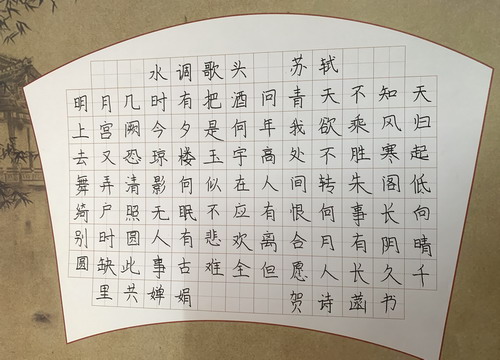 水调歌头 苏轼
明月几时有把酒问青天不知天
上宫阙今夕是何年我欲乘风归
去又恐琼楼玉宇高处不胜寒起
舞弄清影何似在人间转朱阁低
绮户照无眠不应有恨何事长向
别时圆人有悲欢离合月有阴晴
圆缺此事古难全但愿人长久千
里共婵娟 贺诗菡书